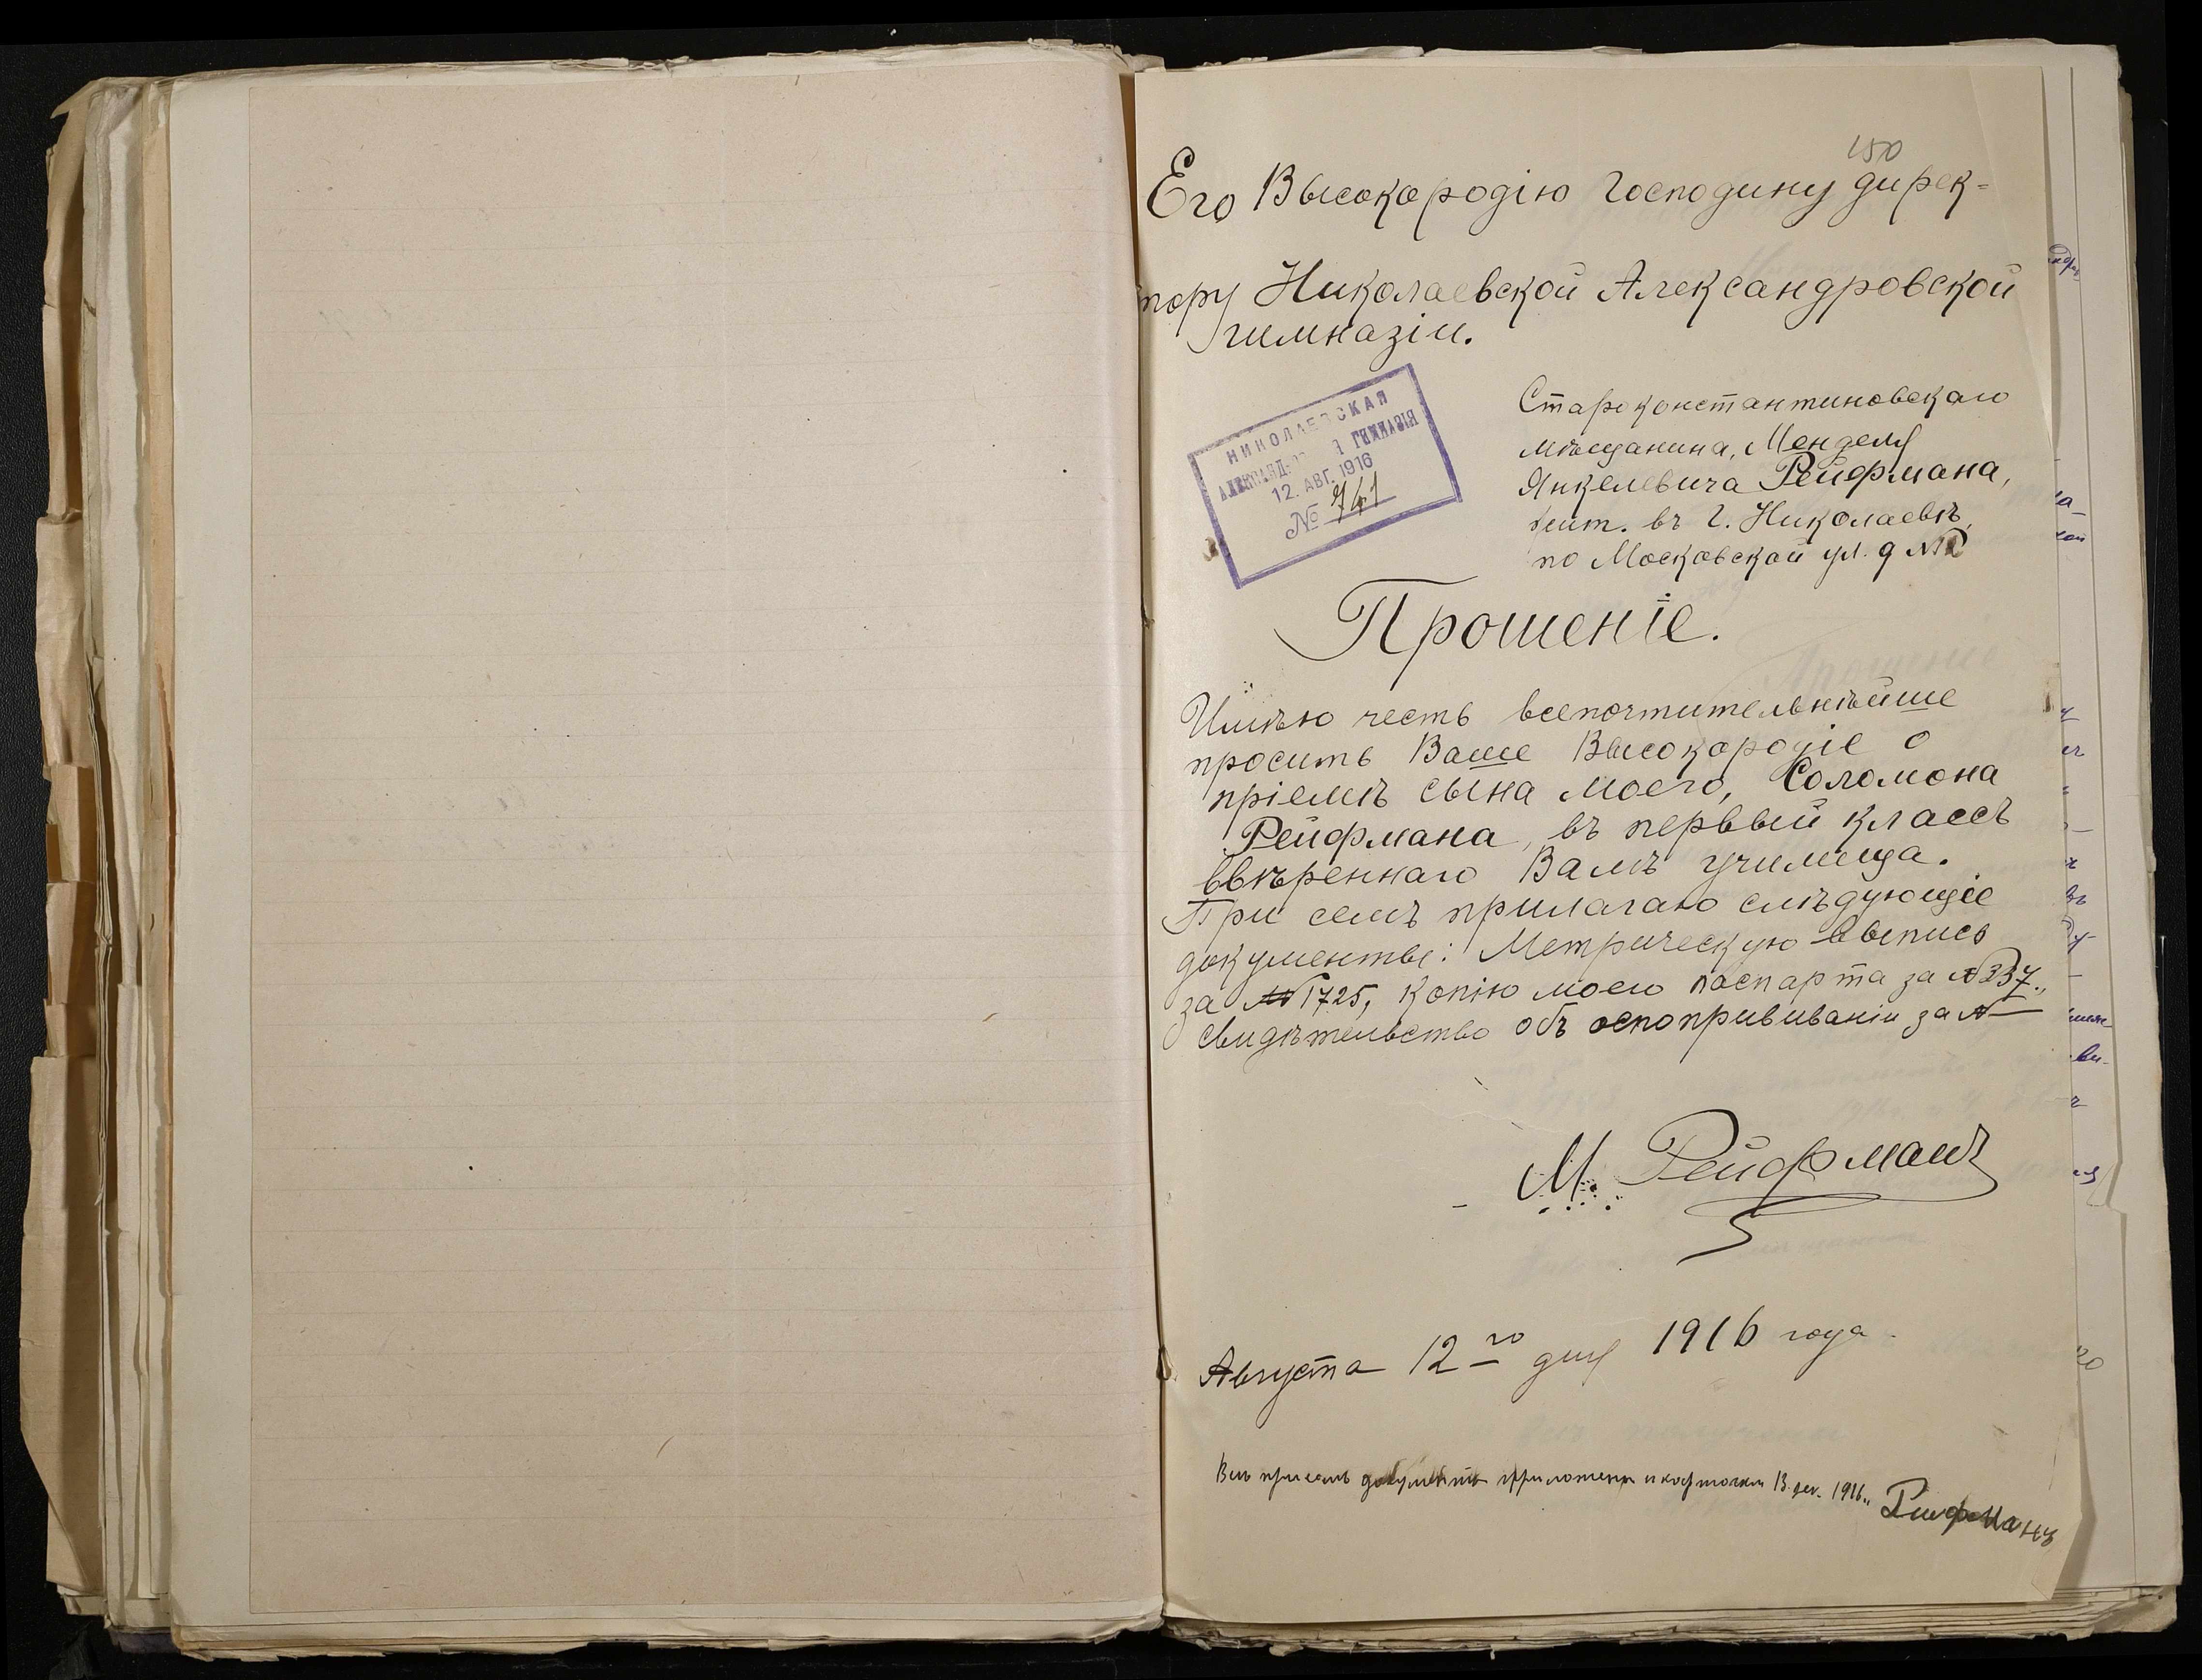 150
Его Высокородію Господину дирек-
тору Николаевской Александровской
гимназіи.
НИКОЛАЕВСКАЯ
АЛЕКСАНДРО Я ГИМНАЗІЯ
12. АВГ. 1916
№ 741
Староконстантиновскаго
мѣщанина, Менделя
Янкелевича Рейфмана,
жит. въ г. Николаевѣ,
по Московской ул. д №
Прошеніе.
Имѣю честь всепочтительнѣйше
просить Ваше Высокородіе о
пріемѣ сына моего, Соломона
Рейфмана, въ первый классъ
ввѣреннаго Вамъ училища.
При семъ прилагаю слѣдующіе
документы: Метрическую выпись
за № 1725, копію моего паспорта за № 337.,
свидѣтельство объ оспопрививаніи за №—
М. Рейфманъ
Августа 12го дня 1916 года.
документы приложены и карточки 13 1916 Рейфманъ